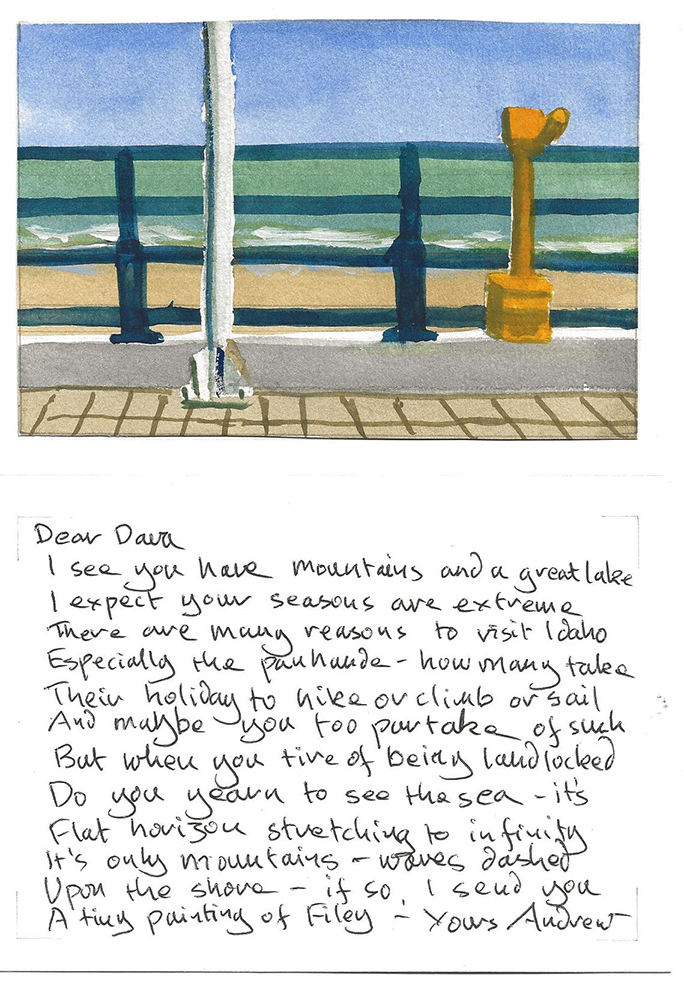 Dear Dava
I see you have mountains and a great lake
I expect your seasons are extreme
There are many reasons to visit Idaho
Especially the panhande - how many take
Their holiday to hike or climb or sail
And maybe you too partake of such
But when you tire of being landlocked
Do you yearn to see the sea - it's
Flat horizon stretching to infinity
It's only mountains - waves dashed
Upon the shore - if so, I send you
A tiny painting of Filey - Yours Andrew